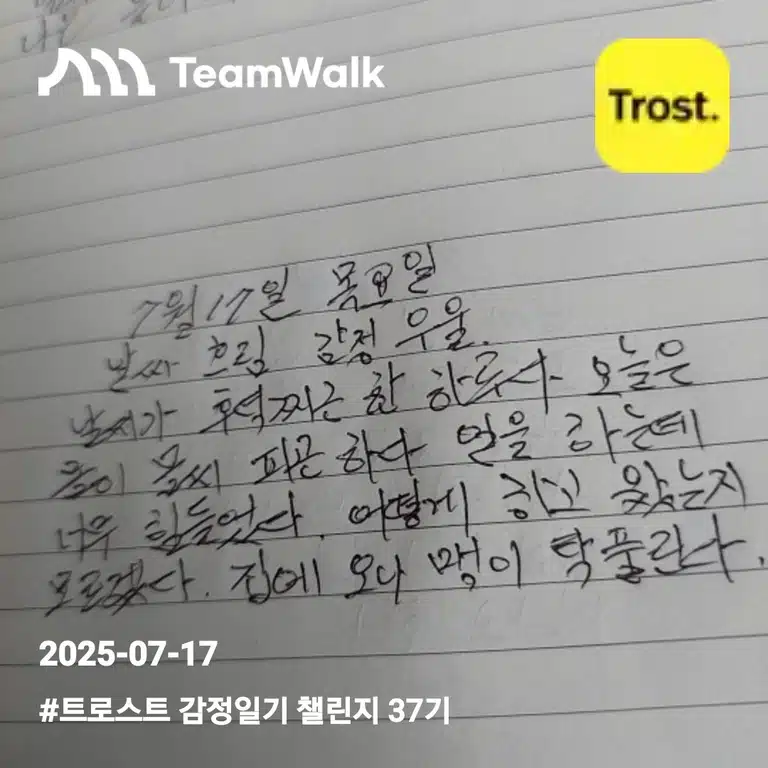 TeamWalk
Trost.
7월 17일 목요일
날씨 흐림 감정 우울.
날씨가 후덕찌근한 하루다 오늘은
몸이 몹씨 피곤하다 일을 하는데
너무 힘들었다. 어떻게 하고 왔는지
모르겠다. 집에 오나 맹이 탁풀린다.
2025-07-17
#트로스트 감정일기 챌린지 37기